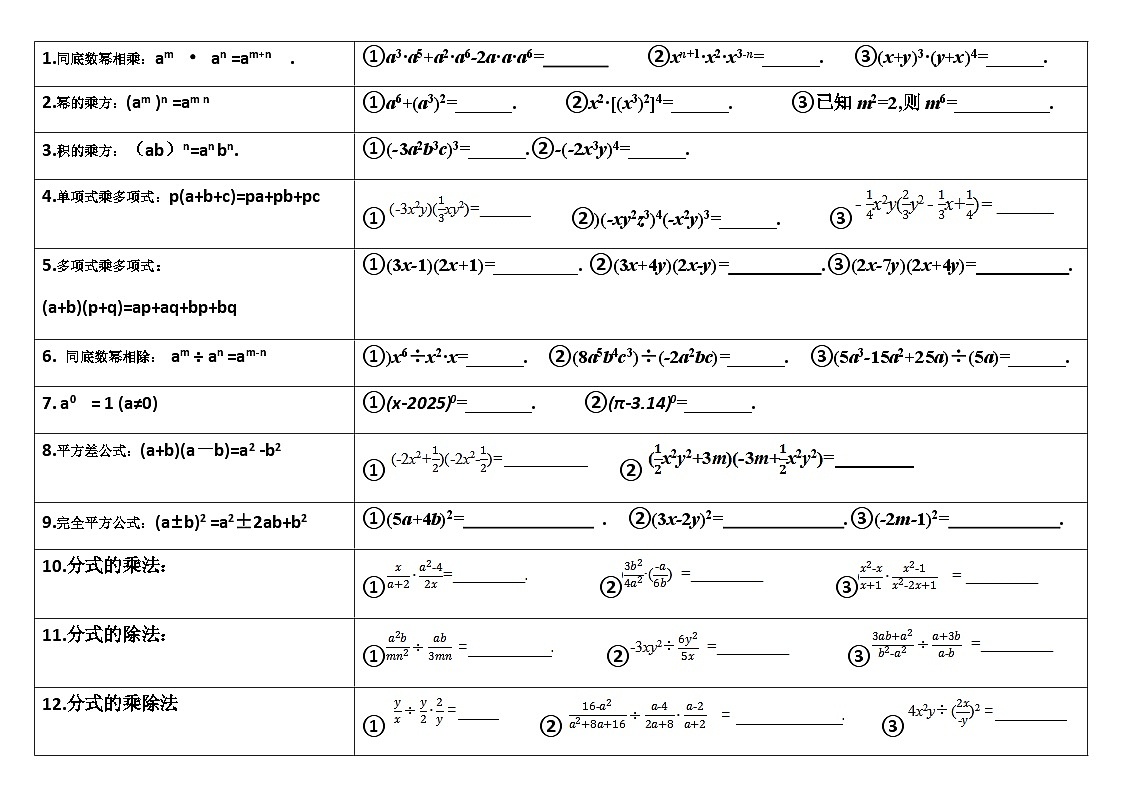 1.同底数幂相乘：aᵐ • aⁿ =aᵐ⁺ⁿ .
①a³·a⁵+a²·a⁶-2a·a·a⁶=_______ ②xⁿ⁺¹·x²·x³⁻ⁿ=______. ③(x+y)³·(y+x)⁴=______.
2.幂的乘方：(aᵐ )ⁿ =aᵐ ⁿ
①a⁶+(a³)²=______. ②x²·[(x³)²]⁴=______. ③已知 m²=2,则 m⁶=__________.
3.积的乘方：（ab）ⁿ=aⁿ bⁿ.
①(-3a²b³c)³=______.②-(-2x³y)⁴=______.
4.单项式乘多项式：p(a+b+c)=pa+pb+pc
① (-3x²y)(1/3xy²)=______ ②)(-xy²z³)⁴(-x²y)³=______. ③ - 1/4x²y(2/3y² - 1/3x+1/4)= ______
5.多项式乘多项式：
(a+b)(p+q)=ap+aq+bp+bq
①(3x-1)(2x+1)=_________. ②(3x+4y)(2x-y)=__________.③(2x-7y)(2x+4y)=__________.
6. 同底数幂相除： aᵐ ÷ aⁿ =aᵐ⁻ⁿ
①)x⁶÷x²·x=______. ②(8a⁵b⁴c³)÷(-2a²bc)=______. ③(5a³-15a²+25a)÷(5a)=______.
7. a⁰ = 1 (a≠0)
①(x-2025)⁰=_______. ②(π-3.14)⁰=_______.
8.平方差公式：(a+b)(a－b)=a² -b²
① (-2x²+1/2)(-2x²-1/2)=__________ ② (1/2x²y²+3m)(-3m+1/2x²y²)=_________
9.完全平方公式：(a±b)² =a²±2ab+b²
①(5a+4b)²=______________ . ②(3x-2y)²=_____________.③(-2m-1)²=____________.
10.分式的乘法：
① x/(a+2)·(a²-4)/2x=________. ② 3b²/4a²·(-a/6b) =________ ③ (x²-x)/(x+1)·(x²-1)/(x²-2x+1) = ________
11.分式的除法：
① a²b/mn² ÷ ab/3mn =_________. ② -3xy²÷ 6y²/5x =________ ③ (3ab+a²)/(b²-a²) ÷ (a+3b)/(a-b) =________
12.分式的乘除法
① y/x ÷ y/2 · 2/y =____ ② (16-a²)/(a²+8a+16) ÷ (a-4)/(2a+8) · (a-2)/(a+2) = ____________. ③ 4x²y÷ (2x/-y)² = ________